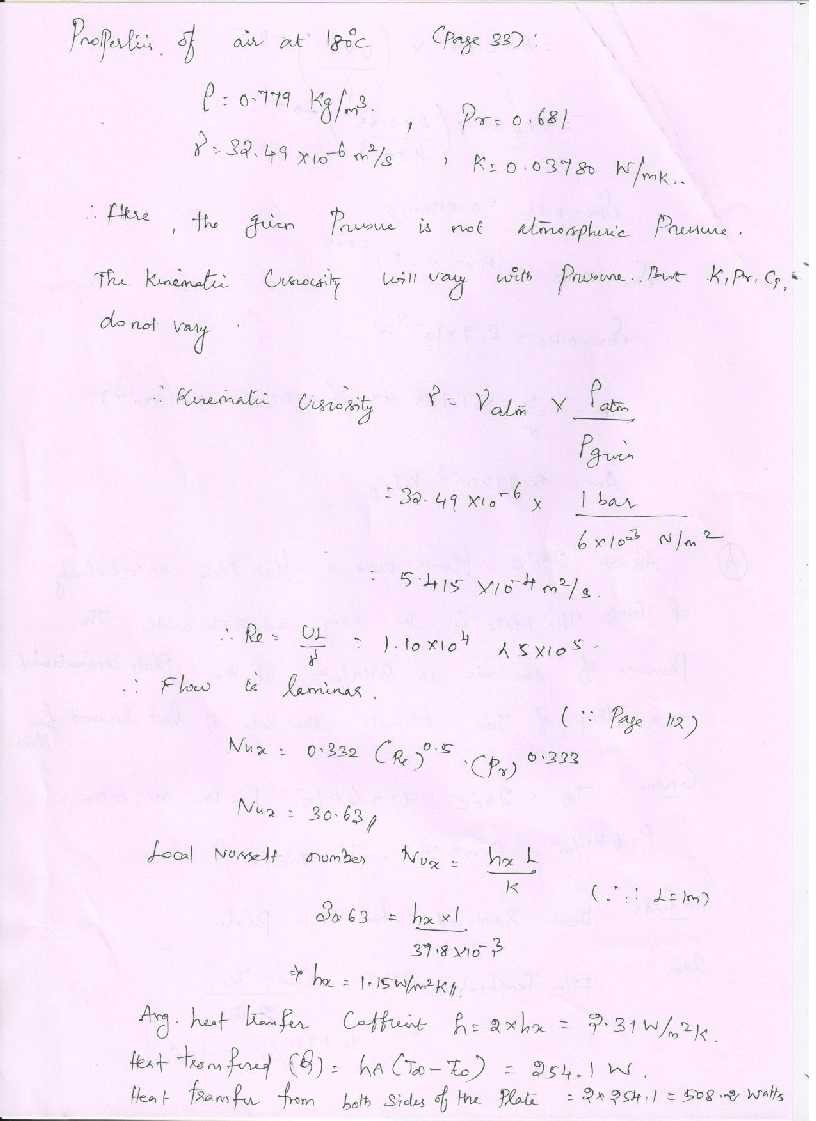 Properties of air at 180°c (Page 33):
ρ = 0.779 Kg/m³. , Pr = 0.681
γ = 32.49 × 10⁻⁶ m²/s , K = 0.03780 W/mK..
∴ Here , the given Pressure is not atmospheric Pressure.
The Kinematic Viscosity will vary with Pressure. But K, Pr, Cp,
do not vary .
∴ Kinematic Viscosity γ = γatm × Patm
Pgiven
= 32.49 × 10⁻⁶ × 1 bar
6 × 10⁻³ N/m²
= 5.415 × 10⁻⁴ m²/s.
∴ Re = UL = 1.10 × 10⁴ < 5 × 10⁵.
γ
∴ Flow is laminar.
(∵ Page 112)
Nux = 0.332 (Re)^0.5 . (Pr)^0.333
Nux = 30.63//
Local Nusselt number Nux = hx L
K
(∵ L = 1m)
30.63 = hx × 1
37.8 × 10⁻³
⇒ hx = 1.15 W/m²K//.
Avg. heat transfer Coeffient h = 2 × hx = 2.31 W/m²K.
Heat transfered (Q) = hA (T∞ - T∞) = 254.1 W.
Heat transfer from both sides of the Plate = 2 × 254.1 = 508.2 Watts